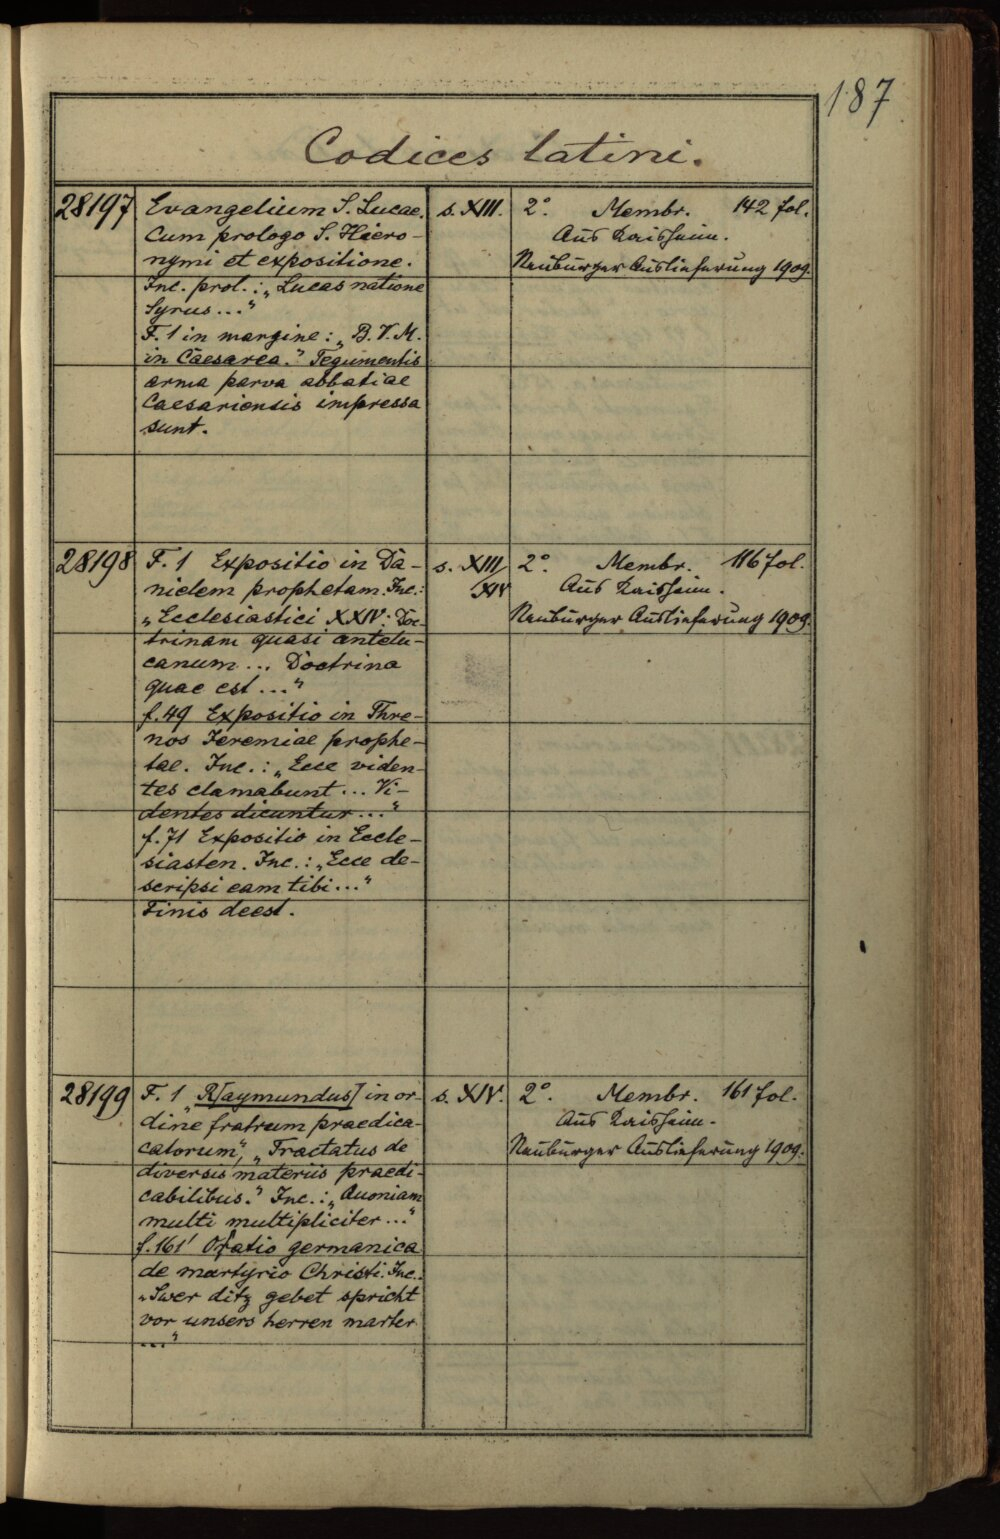 187
Codices latini.
28197 Evangelium S. Lucae. s. XIII. 2°. Membr. 142 fol.
Cum prologo S. Hiero- Aus Kaisheim.
nymi et expositione. Neuburger Auslieferung 1909.
Inc. prol.: „Lucas natione
Syrus..."
F. 1 in margine: „B.V.M.
in Caesarea." Tegumentis
arma parva abbatiae
Caesariensis impressa
sunt.
28198 F. 1 Expositio in Da- s. XIII/ 2°. Membr. 116 fol.
nielem prophetam. Inc.: XIV Aus Kaisheim.
„Ecclesiastici XXIV: Doc- Neuburger Auslieferung 1909.
trinam quasi antelu-
canum... Doctrina
quae est..."
f. 49 Expositio in Thre-
nos Jeremiae prophe-
tae. Inc.: „Ecce viden-
tes clamabunt... Vi-
dentes dicuntur..."
f. 71 Expositio in Eccle-
siasten. Inc.: „Ecce de-
scripsi eam tibi..."
Finis deest.
28199 F. 1 „R[aymundus] in or- s. XIV. 2°. Membr. 161 fol.
dine fratrum praedica- Aus Kaisheim.
catorum", „Tractatus de Neuburger Auslieferung 1909.
diversis materiis praedi-
cabilibus." Inc.: „Quoniam
multi multipliciter..."
f. 161' Oratio germanica
de martyrio Christi. Inc.:
„Swer ditz gebet spricht
vor unsers herren marter
..."